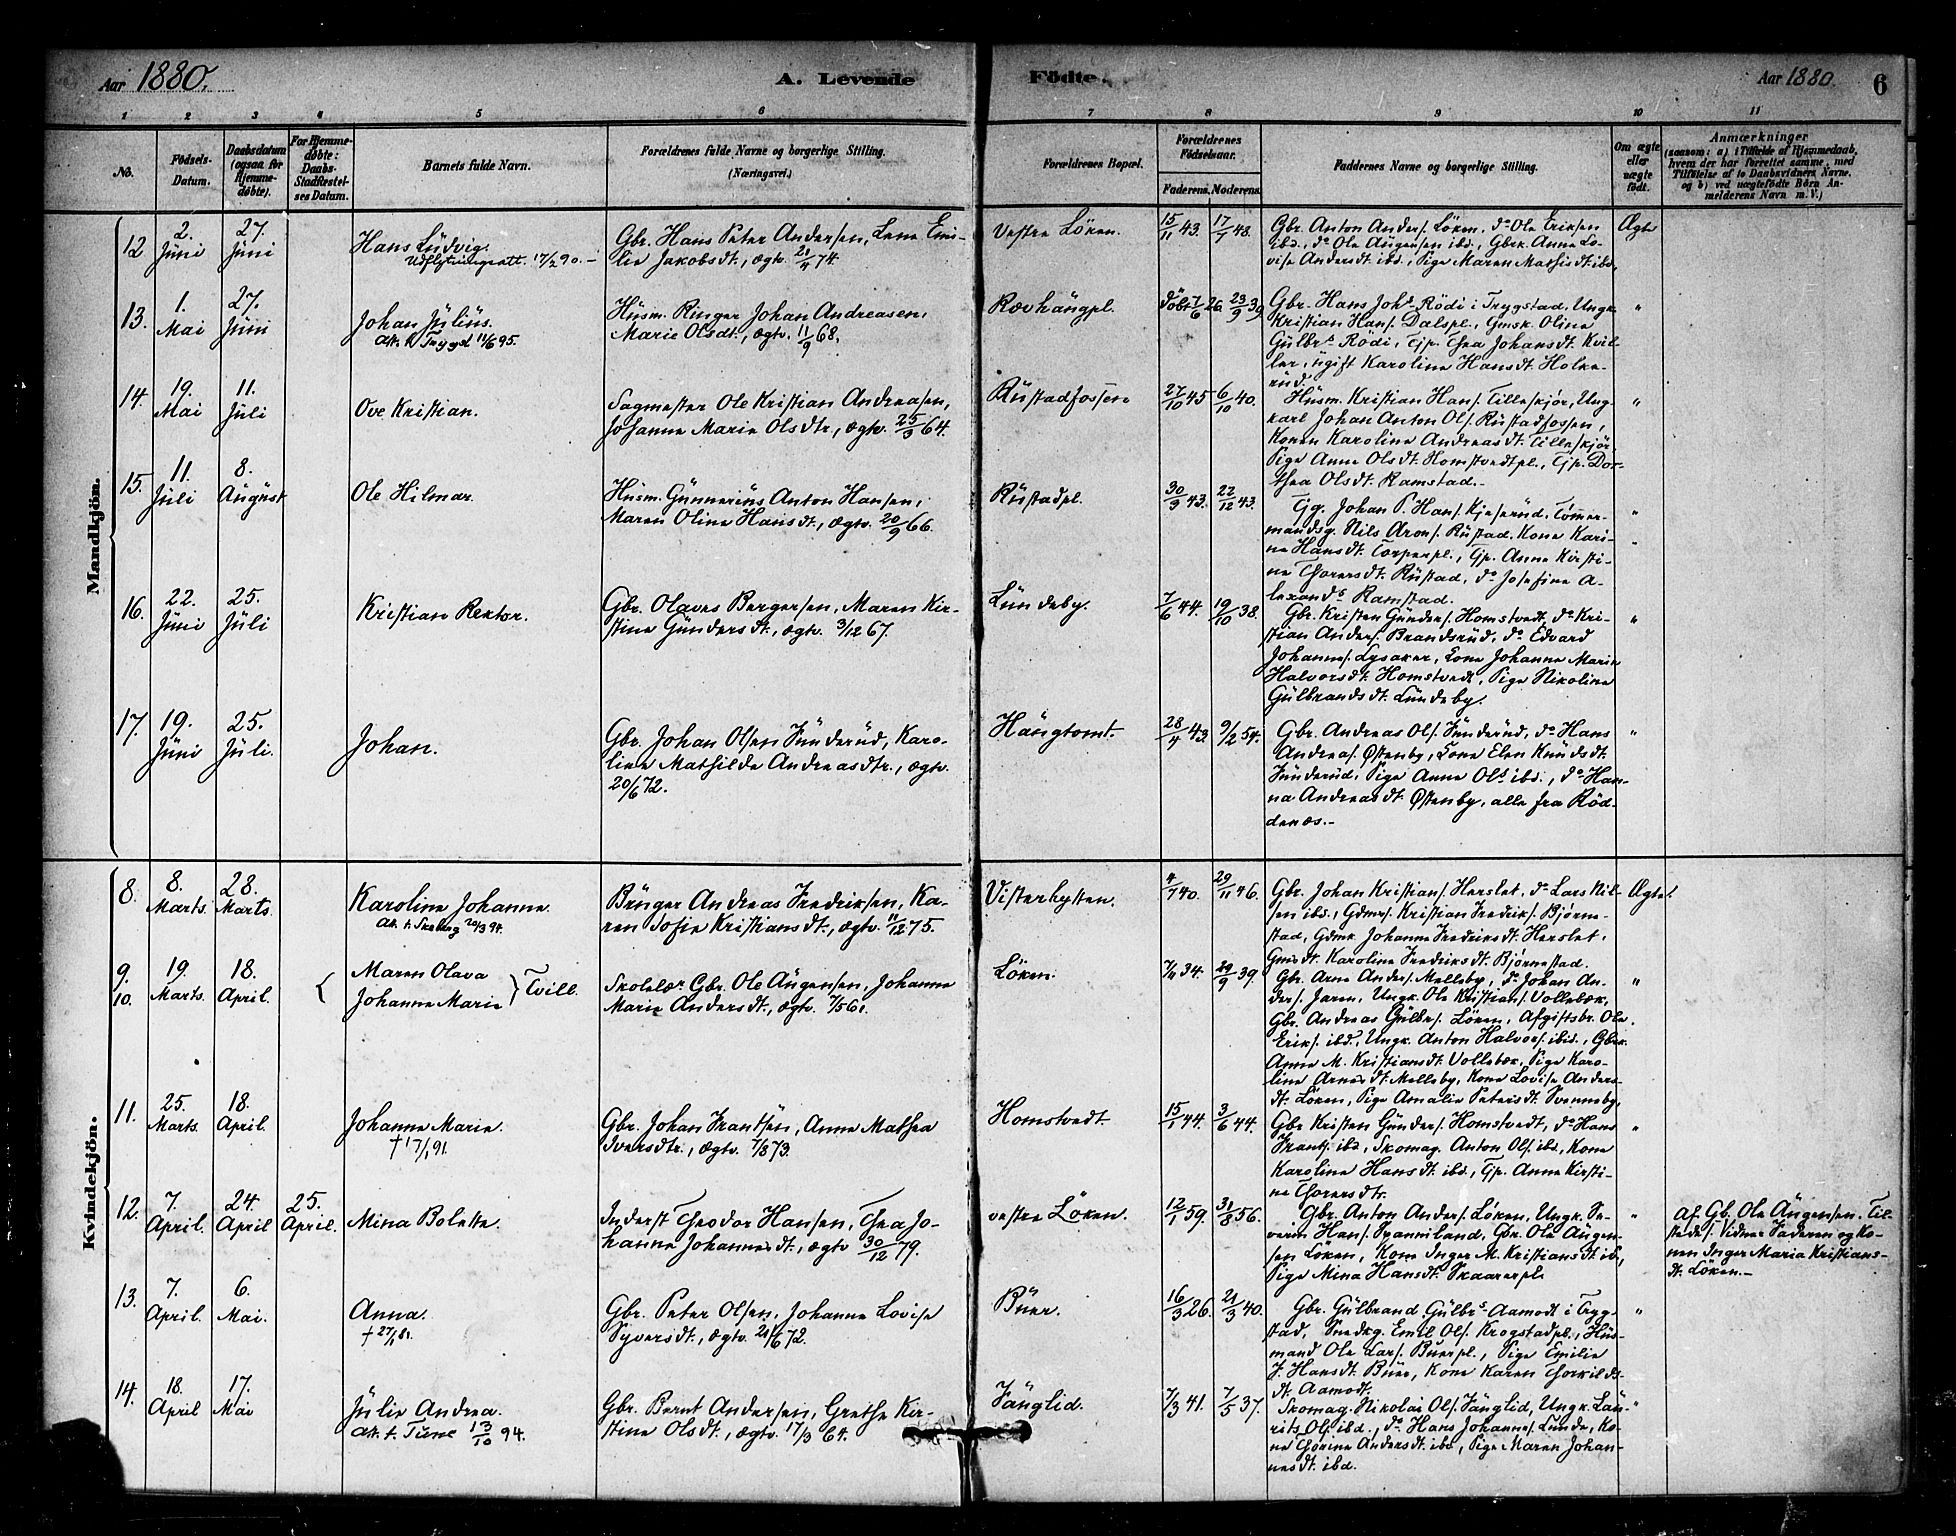 Aar 1880.
A. Levende
Födte.
Aar 1880.
6
1 2 3 4 5 6 7 8 9 10 11
No.
Födsels-
Datum.
Daabsdatum
(ogsaa for
Hjemme-
döbte).
For Hjemme-
døbte:
Daabs-
Stadfæstel-
ses Datum.
Barnets fulde Navn.
Forældrenes fulde Navne og borgerlige Stilling.
(Næringsvei.)
Forældrenes Bopæl.
Forældrenes
Födselsaar.
Faderens. Moderens.
Faddernes Navne og borgerlige Stilling.
Om ægte
eller
uægte
födt.
Anmærkninger
(saasom: a) i Tilfælde af Hjemmedaab,
hvem der har forrettet samme, med
Tilföielse af to Daabsvidners Navne,
og b) ved uægtefödte Börn An-
melderens Navn m. V.)
Mandkjön.
12
2.
Juni
27.
Juni
Hans Ludvig.
Udflytningsatt. 17/2 90. –
Gbr. Hans Peter Andersen, Lene Emi-
lie Jakobsdt., ægtv. 21/4 74.
Vestre Löken.
15/11 43.
17/7 48.
Gbr. Anton Anders. Löken, do Ole Eriksen
ibd., do Ole Augensen ibd., Gbrk. Anne Lo-
vise Andersdt. ibd., Pige Maren Mathisdt. ibd.
Ægte
13.
1.
Mai
27.
Juni
Johan Julius.
Att. t. Trygst. 11/6 95.
Husm. Ringer Johan Andreasen,
Marie Olsdt., ægtv. 11/9 68.
Rævhaugpl.
Döbt 7/6 26
23/9 39
Gbr. Hans Johs. Rödi i Trygstad, Ungk.
Kristian Hans. Dalspl., Gmsk. Oline
Gulbrs. Rödi, Tjp. Thea Johansdt. Kvil-
ler, ugift Karoline Hansdt. Holke-
rud.
"
14.
19.
Mai
11.
Juli
Ove Kristian.
Sagmester Ole Kristian Andreasen,
Johanne Marie Olsdtr., ægtv. 25/3 64.
Rustadfossen
27/10 45
6/10 40.
Husm. Kristian Hans. Tilleskjör, Ung-
karl Johan Anton Ols. Rustadfossen,
Konen Karoline Andreasdt. Tilleskjör
Pige Anne Olsdt. Homstvedtpl., Tjp. Dor-
thea Olsdt. Ramstad.–
"
15.
11.
Juli
8.
August
Ole Hilmar.
Husm. Gunnerius Anton Hansen,
Maren Oline Hansdt., ægtv. 20/9 66.
Rustadpl.
30/9 43.
22/12 43.
Tjg. Johan P. Hans. Kjeserud, Tömmer-
mandsg. Nils Arons. Rustad, Kone Kari-
ne Hansdt. Torperpl., Tjp. Anne Kirsti-
ne Thorersdt. Rustad, do Josefine A-
lexands. Ramstad.
"
16.
22.
Juni
25.
Juli
Kristian Rektor.
Gbr. Olaves Bergersen, Maren Kir-
stine Gundersdt., ægtv. 3/12 67.
Lundeby.
7/6 44.
19/10 38.
Gbr. Kristen Gunders. Homstvedt, do Kri-
stian Anders. Brandsrud, do Edvard
Johannes. Lysaker, Kone Johanne Marie
Halvorsdt. Homstvedt, Pige Nikoline
Gulbrandsdt. Lundeby.
"
17.
19.
Juni
25.
Juli.
Johan.
Gbr. Johan Olsen Funderud, Karo-
line Mathilde Andreasdtr., ægtv.
20/6 72.
Haugtomt.
28/4 43.
9/2 54.
Gbr. Andreas Ols. Funderud, do Hans
Andreas. Østenby, Kone Elen Knudsdt.
Funderud, Pige Anne Ols. ibd., do Han-
na Andreasdt. Østenby, alle fra Röd-
denæs.–
"
Kvindekjön.
8.
8.
Marts.
28.
Marts.
Karoline Johanne.
Att. t. Skeberg 20/3 94.
Bruger Andreas Fredriksen, Ka-
ren Sofie Kristiansdt., ægtv. 11/12 75.
Visterhytten.
4/7 40.
29/11 46.
Gbr. Johan Kristians. Herslet, do Lars Nil-
sen ibd., Gdmrs. Kristian Fredriks. Bjørne-
stad, Gdmk. Johanne Fredriksdt. Herslet,
Gmsdt. Karoline Fredriksdt. Bjørnestad.
Ægte.
9.
10.
19.
Marts.
18.
April.
Maren Olava
Johanne Marie
Tvill.
Skolelær Gbr. Ole Augensen, Johanne
Marie Andersdt., ægtv. 7/5 61.
Löken.
7/11 34.
29/9 39.
Gbr. Arne Anders. Melleby, do Johan An-
ders. Jaren, Ungk. Ole Kristians. Vollebæk,
Gbr. Andreas Gulbrs. Löken, Afgiftsbr. Ole
Eriks. ibd., Ungk. Anton Halvors. ibid., Gbrk.
Anne M. Kristiansdt. Vollebæk, Pige Karo-
line Arnesdt. Melleby, Kone Lovise Anders-
dt. Löken, Pige Amalie Petersdt. Svenneby.
"
11.
25.
Marts.
18.
April.
Johanne Marie.
† 17/1 91.
Gbr. Johan Frantsen, Anne Mathea
Iversdtr., ægtv. 7/8 73.
Homstvedt.
15/1 44.
3/6 44.
Gbr. Kristen Gunders. Homstvedt, do Hans
Frants. ibd., Skomag. Anton Ols. ibd., Kone
Karoline Hansdt. ibd., Tjp. Anne Kirsti-
ne Thorersdtr.
"
12.
7.
April.
24.
April
25.
April.
Mina Bolette.
Inderst Theodor Hansen, Thea Jo-
hanne Johannesdt., ægtv 30/12 79.
vestre Löken.
12/1 59.
31/8 56.
Gbr. Anton Anders. Löken, Ungk. Se-
verin Hans. Spanniland, Gbr. Ole Augen-
sen Löken, Kone Inger M. Kristiansdt. ib.,
Pige Mina Hansdt. Skaarerpl.
"
af Gb. Ole Augensen. Til-
stede: Vidner Faderen og Ko-
nen Inger Maria Kristians-
dt. Löken.–
13.
7.
April.
6.
Mai.
Anna.
† 27/1 81.
Gbr. Peter Olsen, Johanne Lovise
Syversdt., ægtv. 21/6 72.
Buer.
16/3 26.
21/3 40.
Gbr. Gulbrand Gulbrs. Aamodt i Tryg-
stad, Snedkg. Emil Ols. Krogstadpl., Hus-
mand Ole Lars. Buerpl., Pige Emilie
J. Hansdt. Buer, Kone Karen Thorkilds-
dt. Aamodt.
"
14.
18.
April
17.
Mai
Julie Andrea.
Att. t. Tune 13/10 94.
Gbr. Bernt Andersen, Grethe Kir-
stine Olsdt., ægtv. 17/3 64.
Fauglid.
7/3 41.
7/5 37.
Skomag. Nikolai Ols. Fauglid, Ungk. Lau-
rits Ols. ibd., do Hans Johannes. Lunde, Ko-
ne Thorine Andersdt. ibd., Pige Maren Johan-
nesdt. ibd.
"